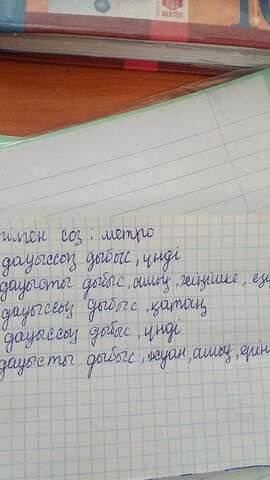 МЕКТЕП
сөз : метро
дауыссыз дыбыс, үнді
дауысты дыбыс, ашық, жіңішке, ез
дауыссыз дыбыс, қатаң
дауыссыз дыбыс, үнді
дауысты дыбыс, жуан, ашық, ерін